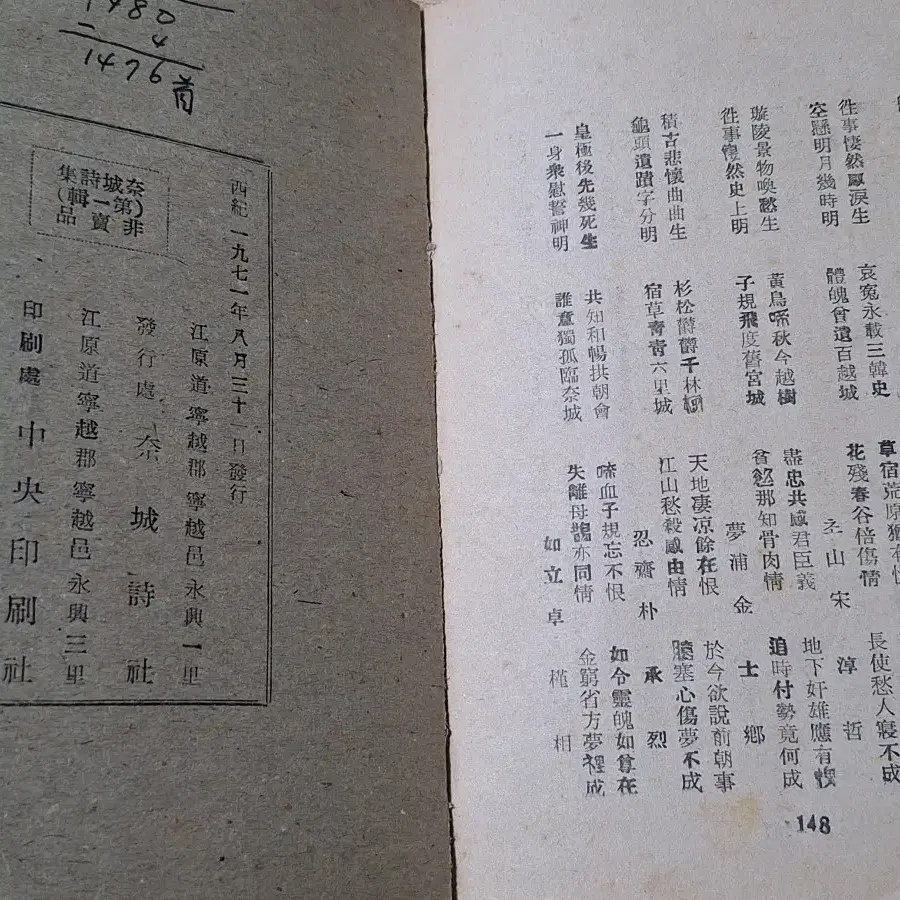 徃事悽然感淚生
空懸明月幾時明
哀冤永載三韓史
體魄曾遺百越城
草宿荒原猶有
花殘春谷倍傷情
長使愁人寢不成
山 宋淳哲
璇陵景物喚愁生
徃事悽然史上明
黃鳥啼秋今越樹
子規飛度舊宮城
盡忠共感君臣義
貧 那知骨肉情
地下奸雄應有
追時付勢竟何成
夢浦 金士鄕
積古悲懷曲曲生
龜頭遺蹟字分明
杉松欝欝千林
宿草靑靑六里城
天地凄凉餘在恨
江山愁殺感由情
於今欲說前朝事
臆塞心傷夢不成
忍齋 朴承烈
皇極後先幾死生
一身衆慰誓神明
共知和暢拱朝會
誰意獨孤臨奈城
啼血子規忘不恨
失離母鵲亦同情
如令靈魄如尊在
金窮省方夢裡成
如立 卓槿相
148
1480
4
1476首
奈城詩集
(第一輯)
非賣品
西紀一九七一年八月三十一日發行
江原道寧越郡寧越邑永興一里
發行處 奈城詩社
江原道寧越郡寧越邑永興三里
印刷處 中央印刷社